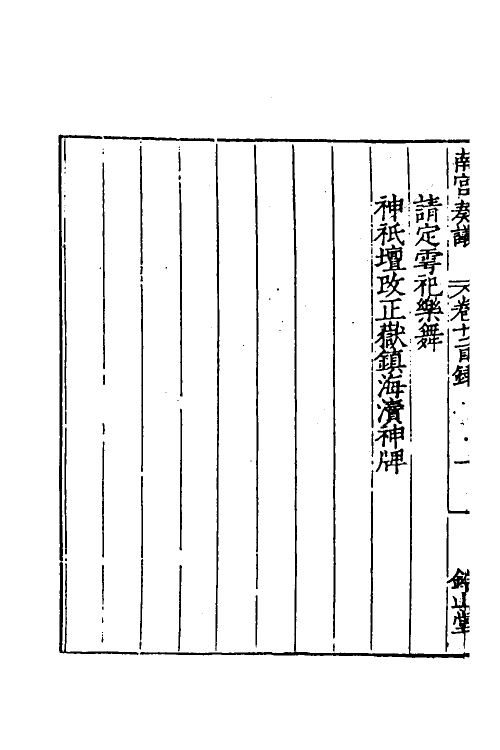 南宫奏議 卷十二目錄 一 鈐山堂
請定雩祀樂舞
神祇壇改正嶽鎮海瀆神牌